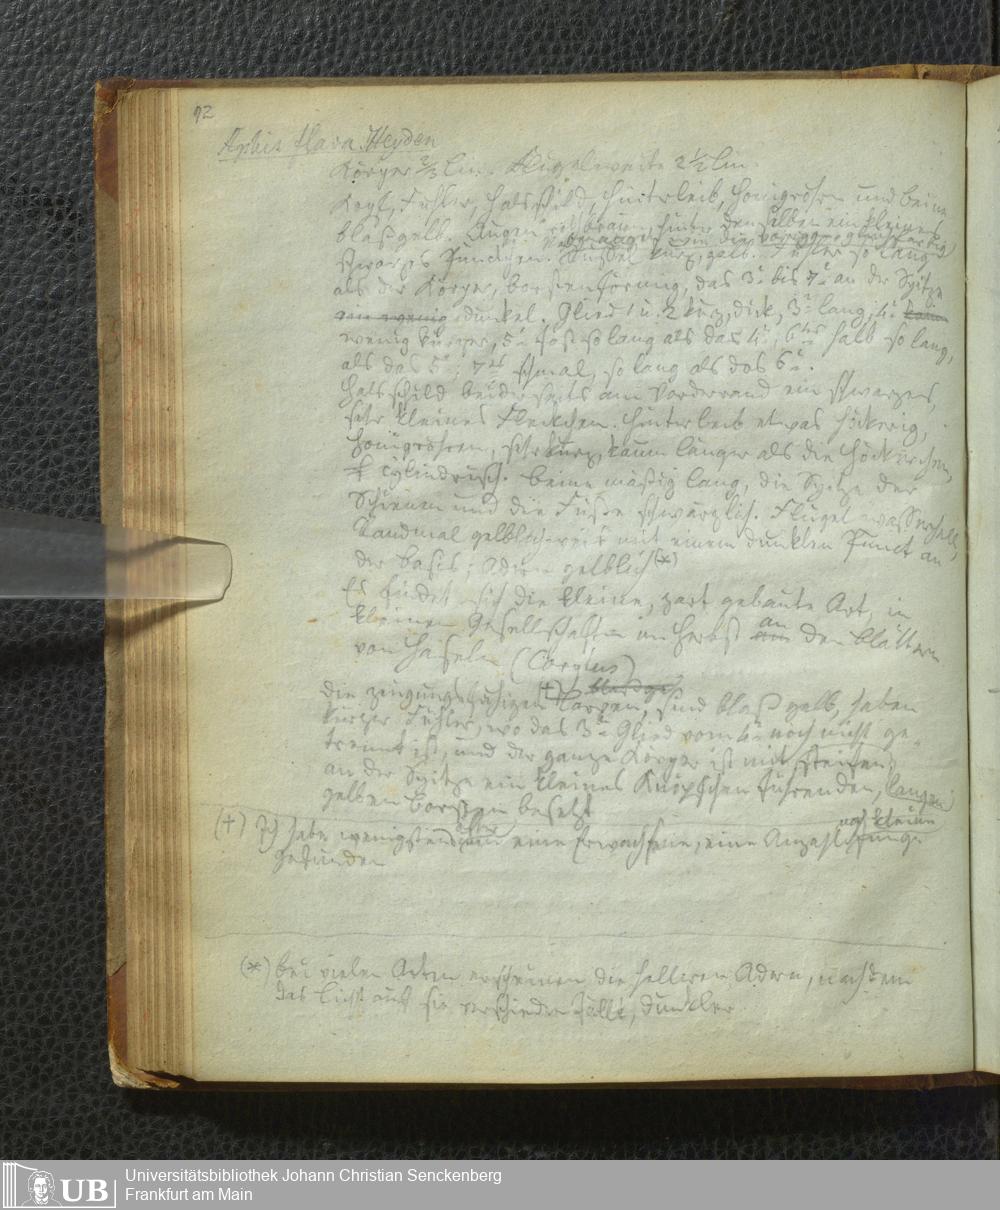 92
Aphis flava Heyden
Körper 2/3 lin. Flügelweite 2 1/2 lin.
Kopf, Fühler, Halsschild, Hinterleib, Honigröhren und Beine
blaßgelb. Augen rothbraun, hinter denselben ein kleines
schwarzes Pünctchen. Rüssel kurz, gelb. Fühler so lang
als der Körper, borstenförmig, das 3. bis 7. an der Spitze
ein wenig dunkel. Glied 1 u. 2 kurz, dick, 3. lang, 4. kaum
wenig kürzer, 5. fast so lang als das 4., 6tes halb so lang,
als das 5.; 7tes schmal, so lang als das 6.
Halsschild beiderseits am Vorderrand ein schwarzes,
sehr kleines Fleckchen. Hinterleib etwas höckerig,
Honigröhren, sehr kurz, kaum länger als die Höckerchen,
cylindrisch. Beine mäßig lang, die Spitze der
Schienen und die Füße schwärzlich. Flügel wasserhell,
Randmal gelblichweiß mit einem dunklen Punct an
der Basis; Adern gelblich (*)
Es findet sich die kleine, zart gebaute Art, in
kleinen Gesellschaften im Herbst an den Blättern
von Haseln (Corylus)
die zeugungsfähigen (+) Larven, sind blaß gelb, haben
kürzere Fühler, wo das 3. Glied vom 4. noch nicht ge-
trennt ist, und der ganze Körper ist mit steifen,
an der Spitze ein kleines Knöpfchen führenden, langen
gelben Borsten besetzt
(+) Ich habe wenigstens unter eine Erwachsene, eine Anzahl noch kleine Junge
gefunden
(*) bei vielen Adern erscheinen die helleren Adern, nachdem
das Licht auf sie verschieden fällt, dunkler
Universitätsbibliothek Johann Christian Senckenberg
UB Frankfurt am Main